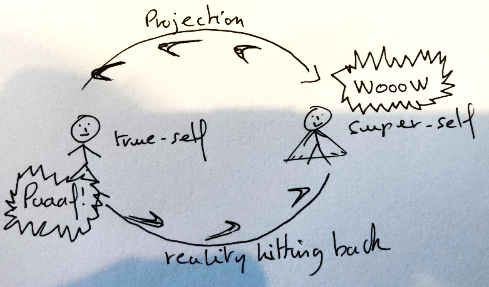 Projection
Wooow
true-self
super-self
Puaaf!
reality hitting back